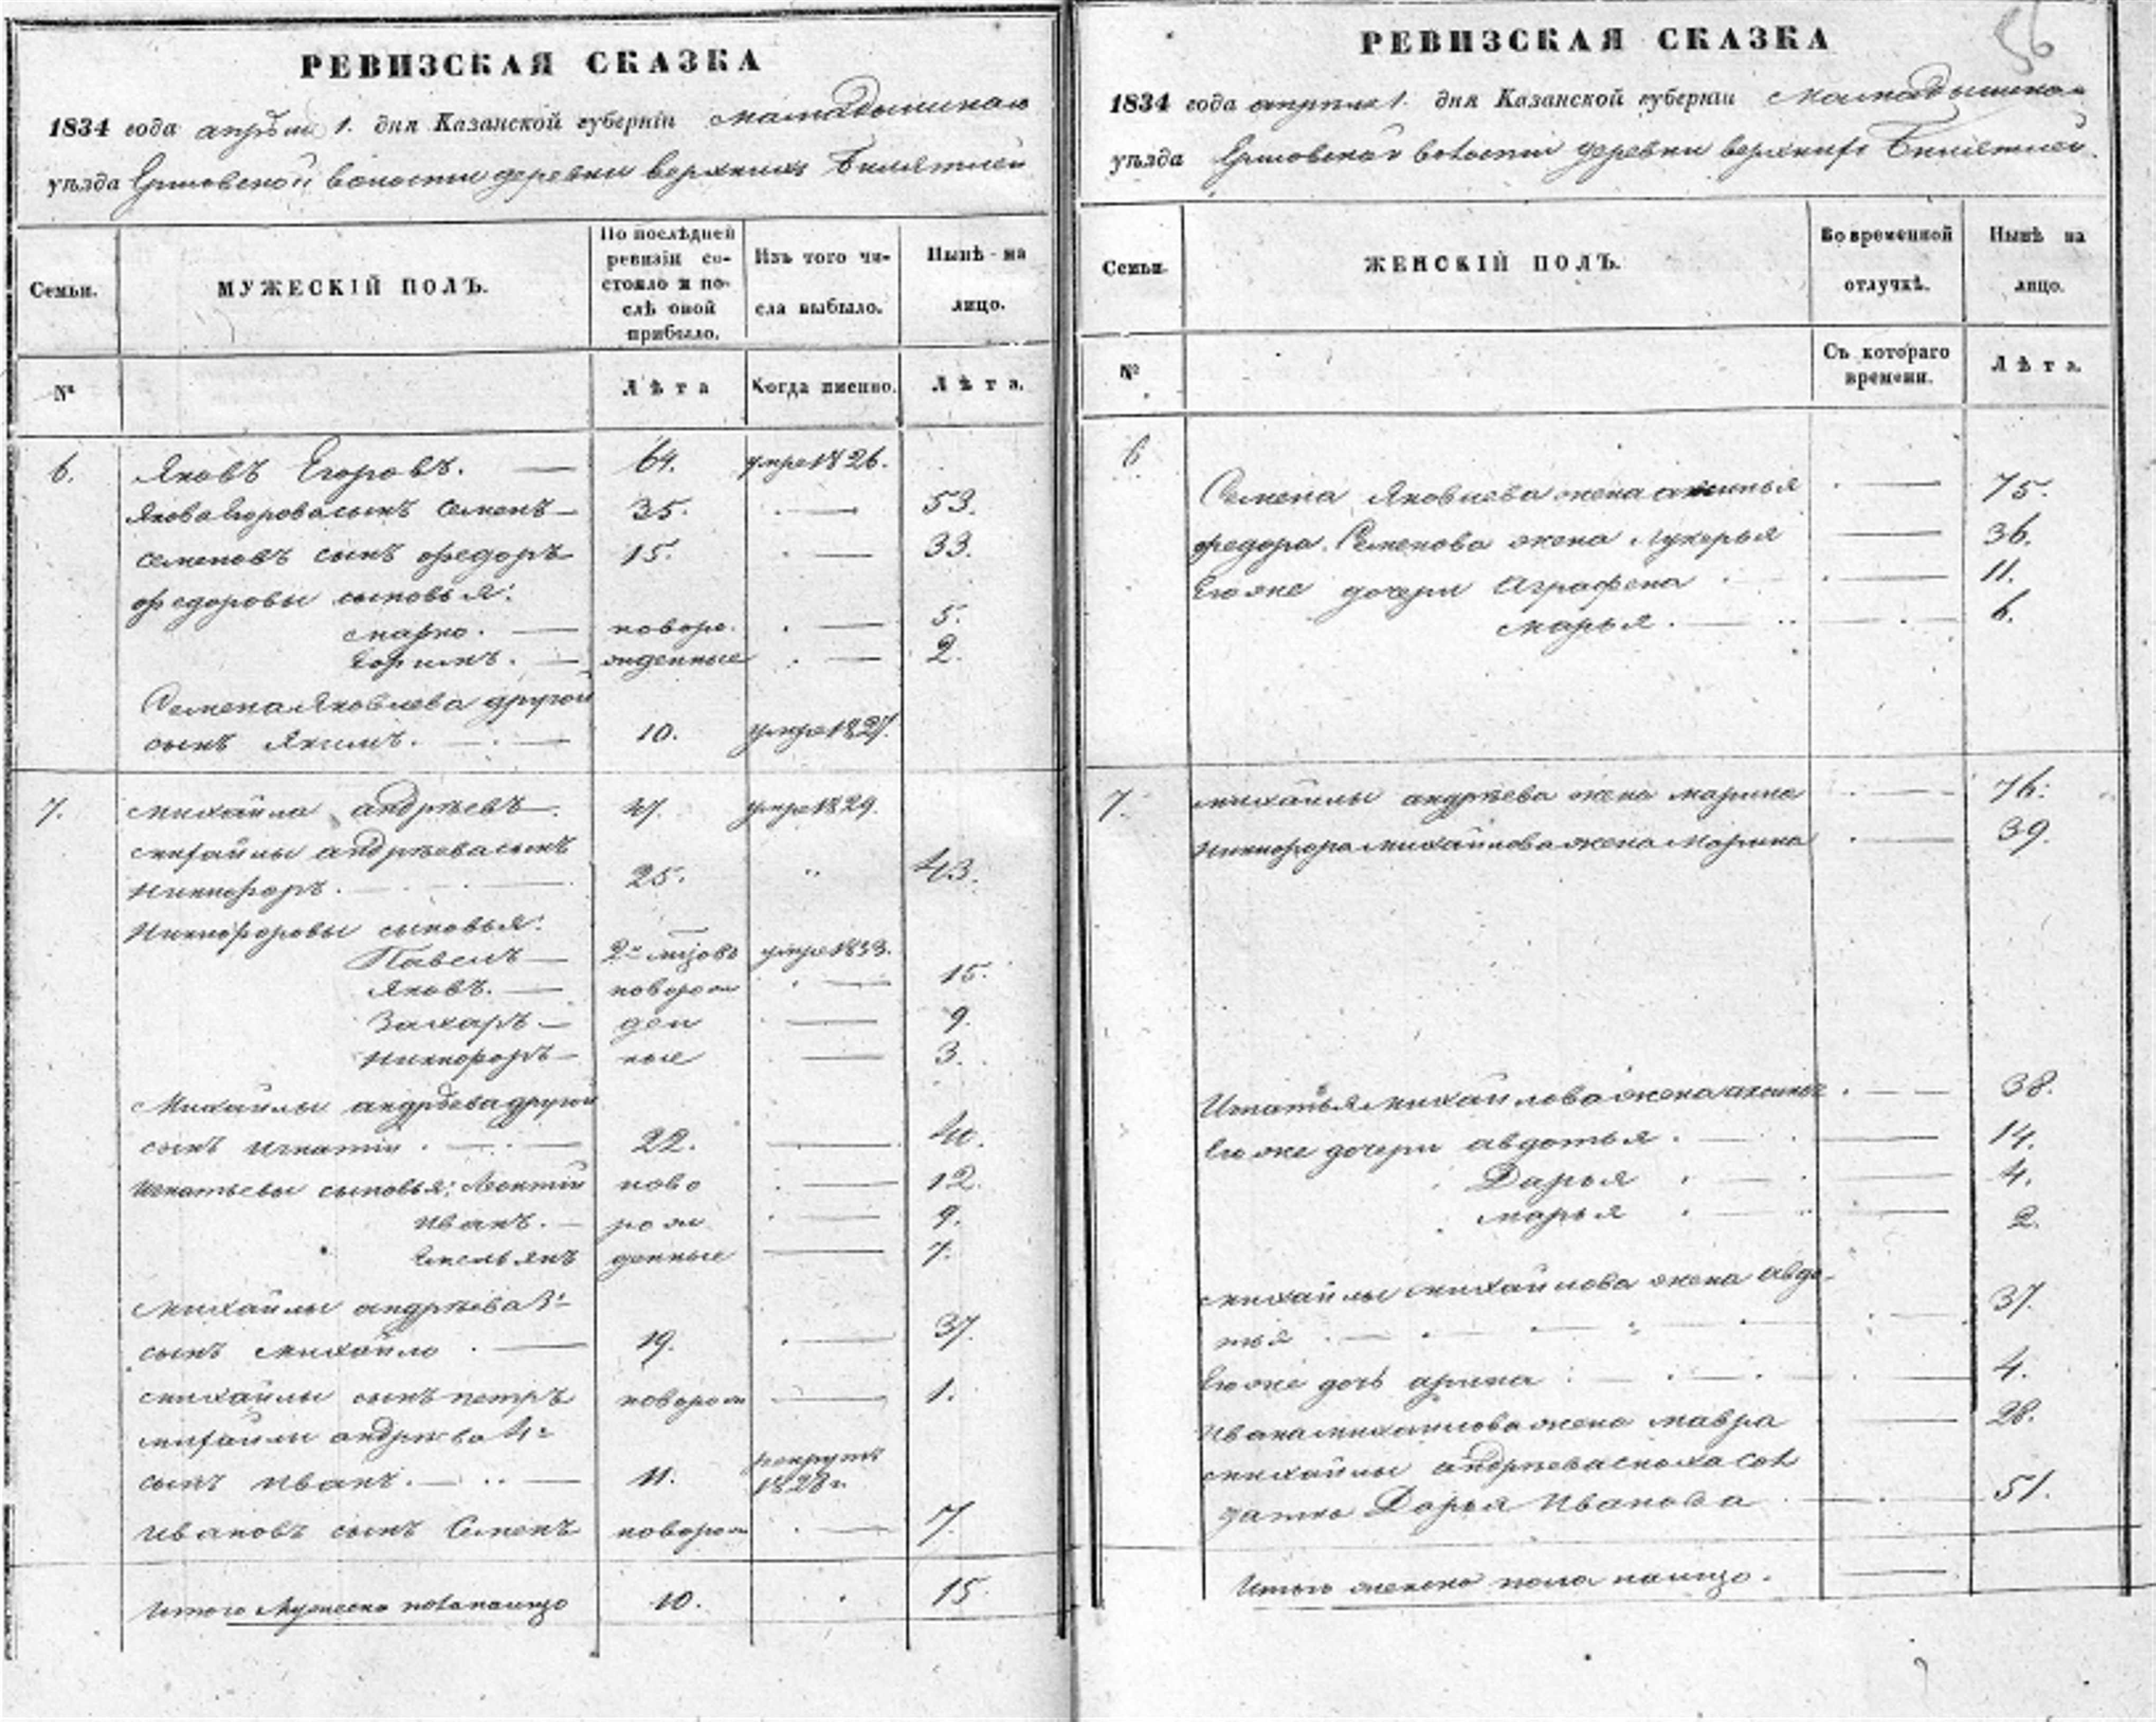 РЕВИЗСКАЯ СКАЗКА
1834 года апрѣля 1. дня Казанской губерніи Мамадышскаго
уѣзда волости деревни верхнихъ
Семьи.
МУЖЕСКІЙ ПОЛЪ.
По послѣдней ревизіи со-
стояло и по-
слѣ оной
прибыло.
Изъ того чи-
сла выбыло.
Нынѣ на
лицо.
№
Лѣта
Когда именно.
Лѣта.
6. Яковъ Егоровъ. — 64. умре 1826.
Якова Егорова сынъ Семенъ — 35. — 53.
Семеновъ сынъ Федоръ 15. — 33.
Федоровы сыновья:
Марко. — новоро- — 5.
Ефимъ. — жденные — 2.
Семена Яковлева другой
сынъ Якимъ. — 10. умре 1827.
7. Михайла андрѣевъ — 47. умре 1829.
Михайлы андрѣева сынъ
Никифоръ. — 25. " 43.
Никифоровы сыновья:
Павелъ — умре 1833.
Яковъ. — новорож — 15.
Захаръ — ден — 9.
Никифоръ — ные — 3.
Михайлы андрѣева другой
сынъ игнатій. — 22. — 40.
Игнатьевы сыновья: Леонтій ново — 12.
Иванъ. — рож — 9.
Емельянъ денные — 7.
Михайлы андрѣева 3й
сынъ Михайло. — 19. — 37.
Михайлы сынъ петръ новорож — 1.
Михайлы андрѣева 4й
сынъ Иванъ. — 11. рекрутъ
1828 г.
Ивановъ сынъ Семенъ новорож — 7.
Итого Мужеска пола налицо 10. 15.
56
РЕВИЗСКАЯ СКАЗКА
1834 года апрѣля 1. дня Казанской губерніи Мамадышскаго
уѣзда волости деревни верхнихъ
Семьи.
ЖЕНСКІЙ ПОЛЪ.
Во временной
отлучкѣ.
Нынѣ на
лицо.
№
Съ котораго
времени.
Лѣта.
6
Семена Яковлева жена аксинья — 75.
Федора Семенова жена Лукерья — 36.
Его же дочери Аграфена — 11.
Марья. — 6.
7. Михайлы андрѣева жена Марина — 76.
Никифора Михайлова жена Марина — 39.
Игнатья Михайлова жена аксинья — 38.
Его же дочери авдотья. — 14.
Дарья — 4.
Марья — 2.
Михайлы Михайлова жена авдо-
тья — 37.
Его же дочь арина — 4.
Ивана Михайлова жена Мавра — 28.
Михайлы андрѣева сноха сол
датка Дарья Иванова — 51.
Итого женска пола налицо. —